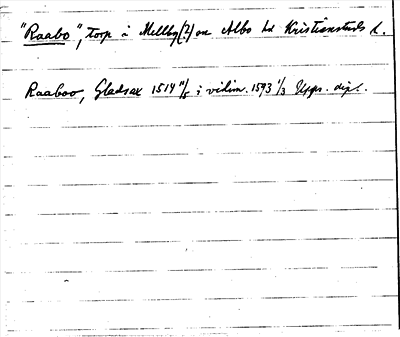 "Raabo", torp å Mellby(?) sn Albo hd Kristianstads l.
Raaboo, Gladsax 1514 11/5 i vidim. 1593 1/3 Upps. dipl.